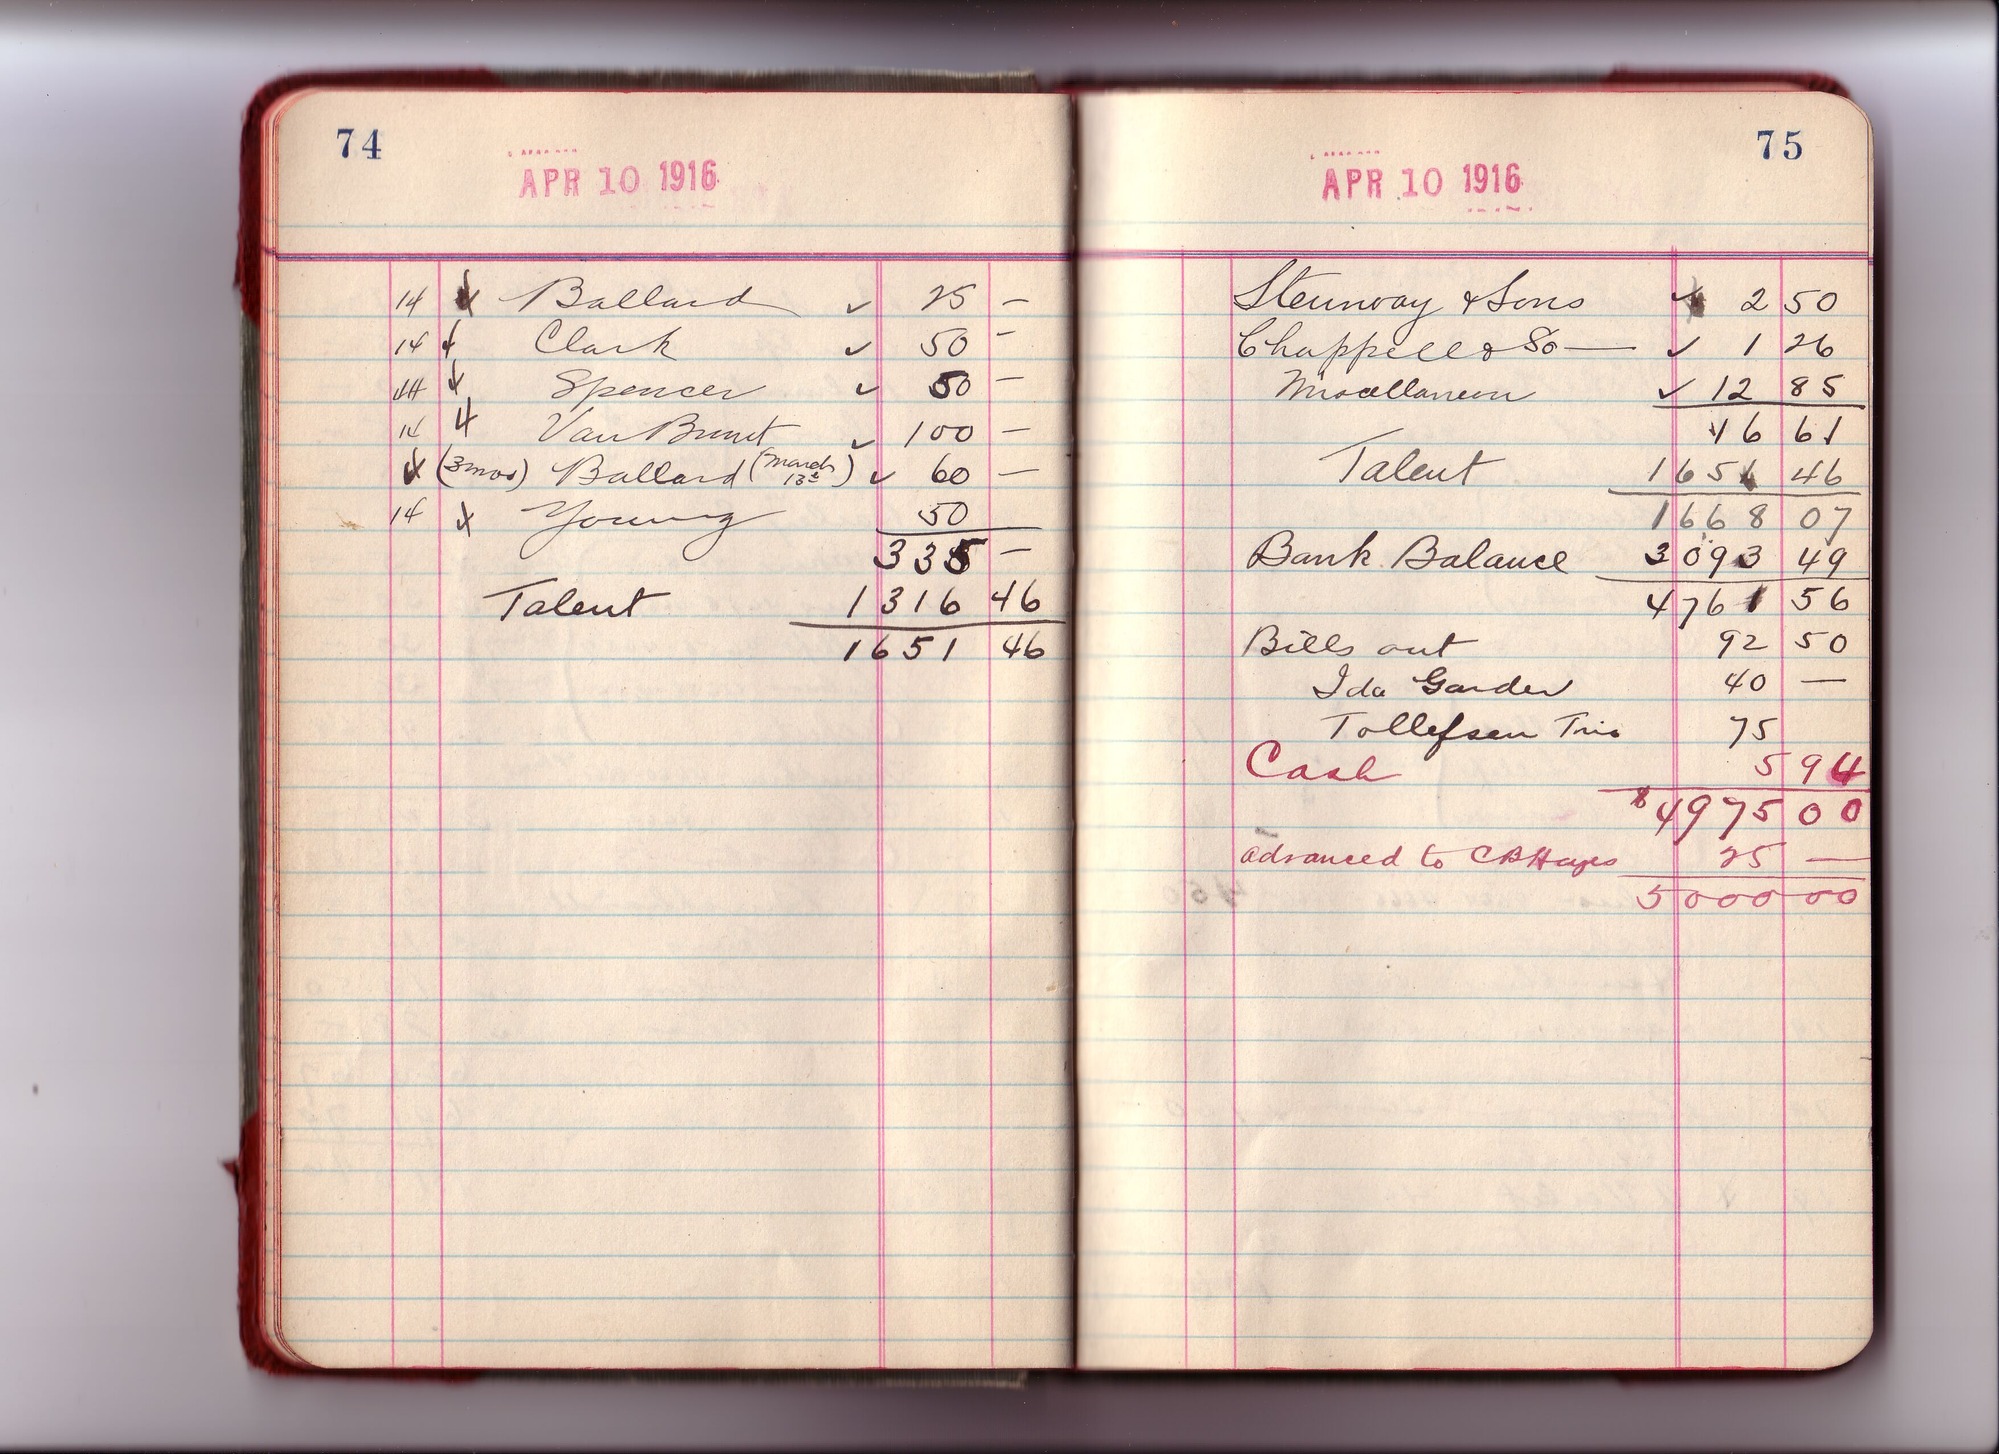 74
APR 10 1916
14 Ballard ✓ 25 —
14 Clark ✓ 50 —
14 Spencer ✓ 50 —
14 Van Brunt ✓ 100 —
(3 mos) Ballard (March 13th) ✓ 60 —
14 Young 50
335 —
Talent 1316 46
1651 46
75
APR 10 1916
Steinway & Sons ✓ 2 50
Chappell & Co — ✓ 1 26
Miscellaneous ✓ 12 85
16 61
Talent 1651 46
1668 07
Bank Balance 3093 49
4761 56
Bills out 92 50
Ida Garder 40 —
Tollefsen Trio 75
Cash 5 94
$4975 00
advanced to CB Hayes 25 —
5000 00